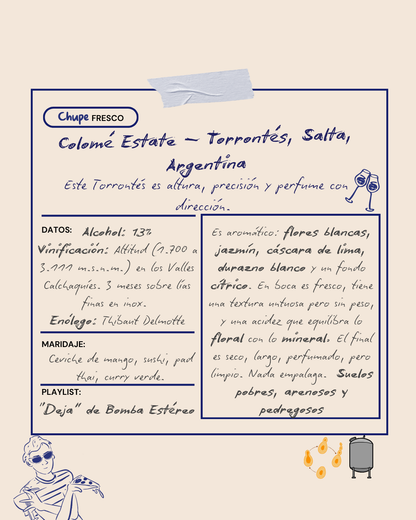 Chupe FRESCO
Colomé Estate – Torrontés, Salta,
Argentina
Este Torrontés es altura, precisión y perfume con
dirección.
DATOS: Alcohol: 13%
Vinificación: Altitud (1.700 a
3.111 m.s.n.m.) en los Valles
Calchaquíes. 3 meses sobre lías
finas en inox.
Enólogo: Thibaut Delmotte
MARIDAJE:
Ceviche de mango, sushi, pad
thai, curry verde.
PLAYLIST:
"Deja" de Bomba Estéreo
Es aromático: flores blancas,
jazmín, cáscara de lima,
durazno blanco y un fondo
cítrico. En boca es fresco, tiene
una textura untuosa pero sin peso,
y una acidez que equilibra lo
floral con lo mineral. El final
es seco, largo, perfumado, pero
limpio. Nada empalaga. Suelos
pobres, arenosos y
pedregosos